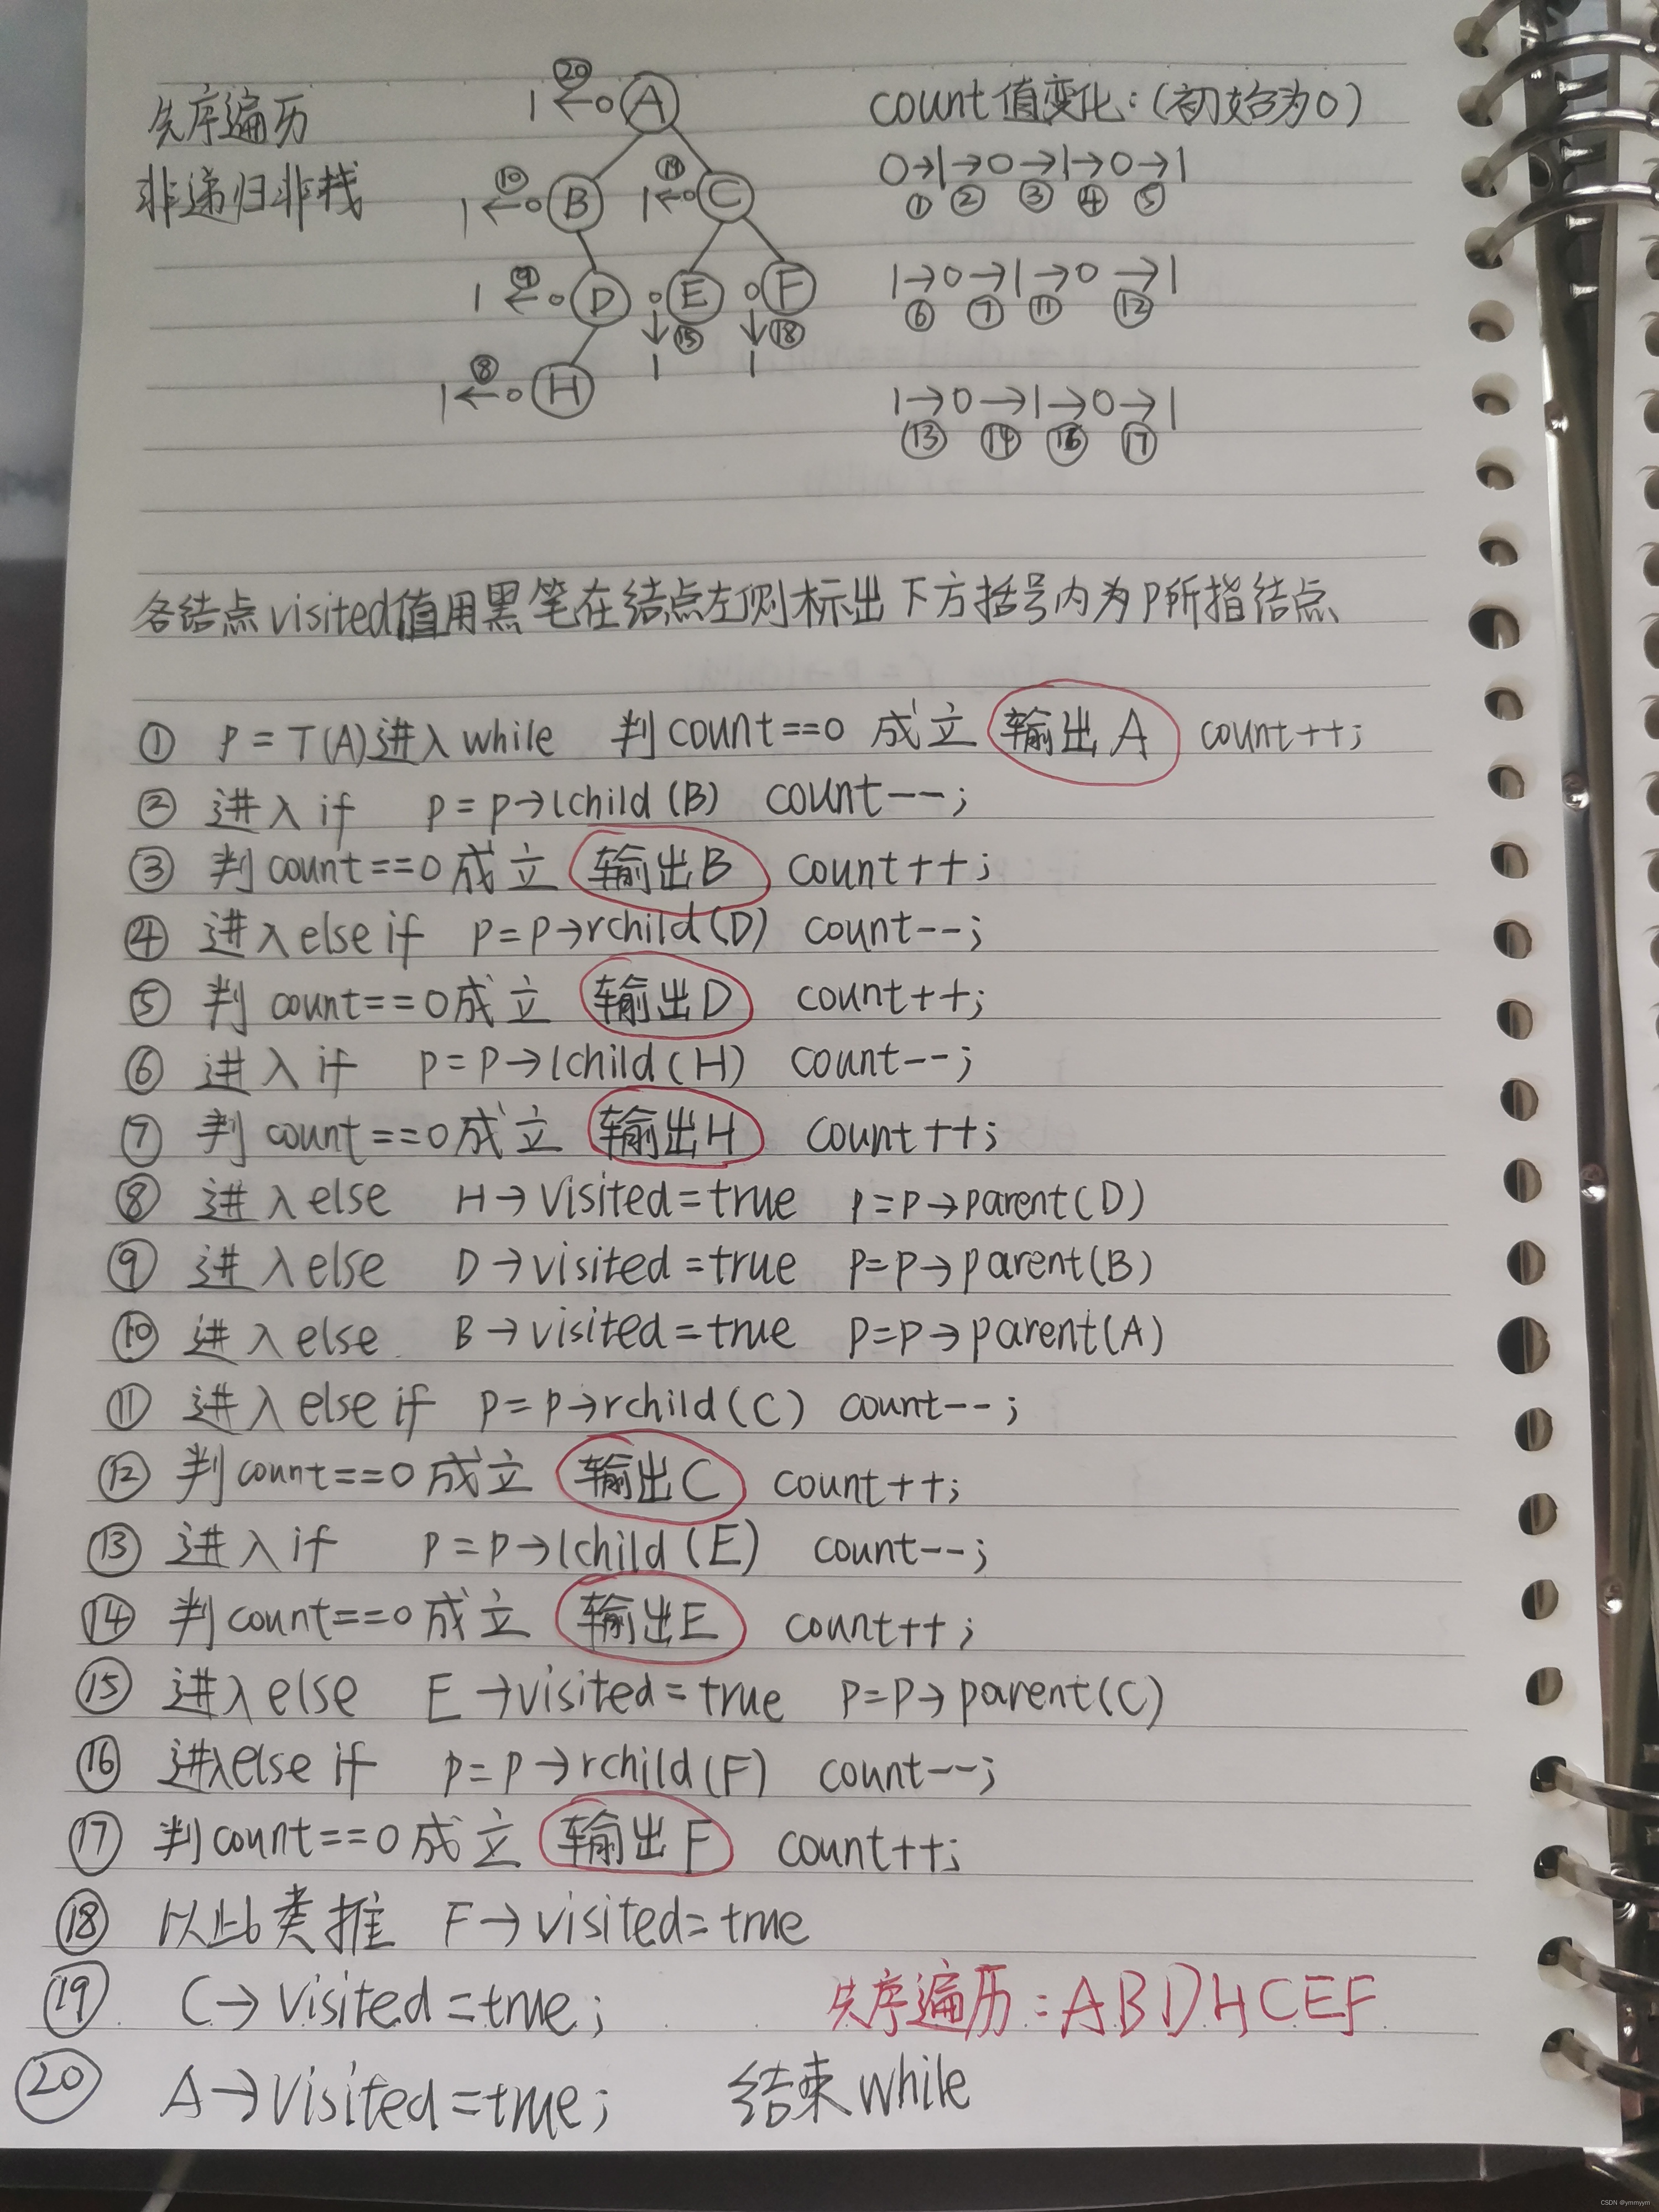 先序遍历
非递归非栈
⑳
1←0 A
⑩ ⑲
1←0 B 1←0 C
⑨
1←0 D 0 E 0 F
↓⑮ ↓⑱
1 1
⑧
1←0 H
count值变化:(初始为0)
0→1→0→1→0→1
① ② ③ ④ ⑤
1→0→1→0→1
⑥ ⑦ ⑪ ⑫
1→0→1→0→1
⑬ ⑭ ⑯ ⑰
各结点visited值用黑笔在结点左侧标出 下方括号内为P所指结点
① p=T(A)进入while 判count==0 成立 输出A count++;
② 进入if p=p→lchild(B) count--;
③ 判count==0成立 输出B count++;
④ 进入else if p=p→rchild(D) count--;
⑤ 判 count==0成立 输出D count++;
⑥ 进入if p=p→lchild(H) count--;
⑦ 判 count==0成立 输出H count++;
⑧ 进入else H→visited=true p=p→parent(D)
⑨ 进入else D→visited=true p=p→parent(B)
⑩ 进入else B→visited=true p=p→parent(A)
⑪ 进入else if p=p→rchild(C) count--;
⑫ 判count==0成立 输出C count++;
⑬ 进入if p=p→lchild(E) count--;
⑭ 判count==0成立 输出E count++;
⑮ 进入else E→visited=true p=p→parent(C)
⑯ 进入else if p=p→rchild(F) count--;
⑰ 判count==0成立 输出F count++;
⑱ 以此类推 F→visited=true
⑲ C→visited=true; 先序遍历:ABDHCEF
⑳ A→visited=true; 结束while
CSDN @ymmyym